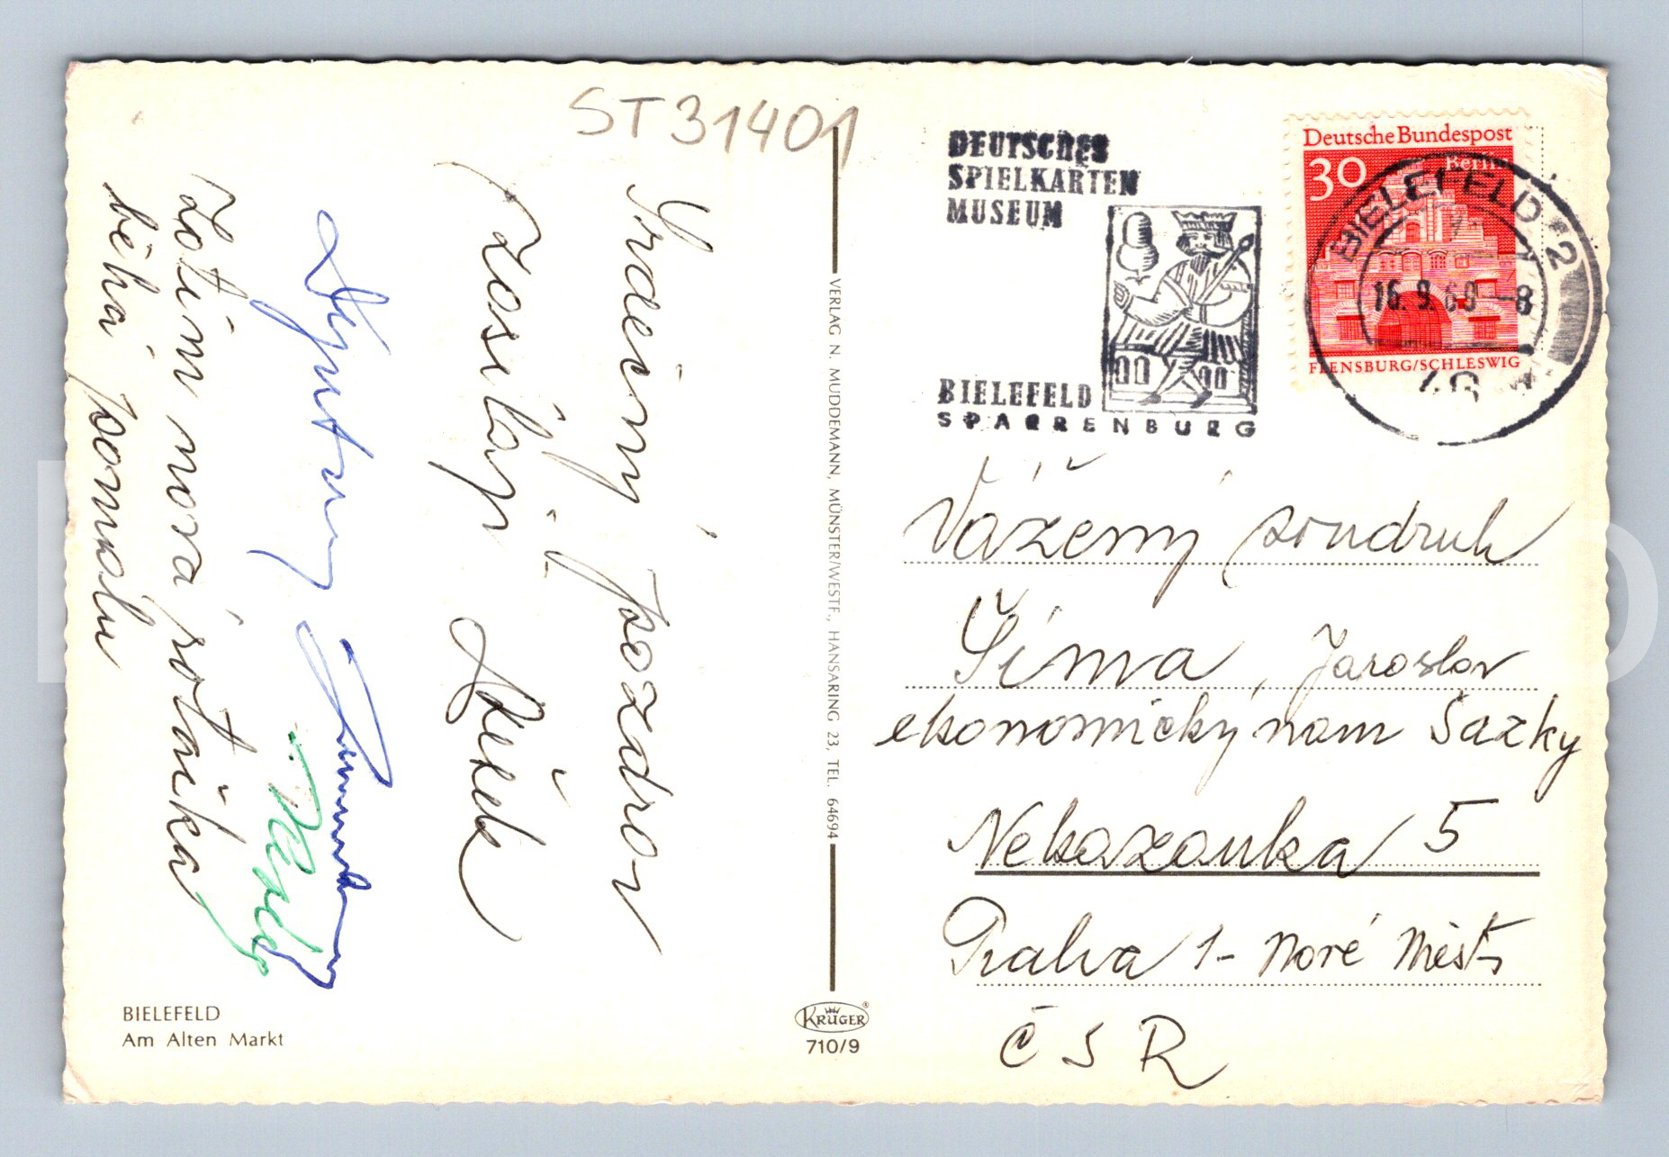 ST31401
Srdečný pozdrav
zasílají
Jeřek
Zatím nová rotačka
běhá pomalu
BIELEFELD
Am Alten Markt
VERLAG N. MUDDEMANN, MÜNSTER/WESTF., HANSARING 23, TEL. 64694
KRÜGER
710/9
DEUTSCHES
SPIELKARTEN
MUSEUM
BIELEFELD
SPARRENBURG
Deutsche Bundespost
30
Berlin
FLENSBURG/SCHLESWIG
BIELEFELD 2
16.9.68-8
Vážený soudruh
Šíma, Jaroslav
ekonomický nám Sazky
Nekazanka 5
Praha 1- Nové Město
ČSR